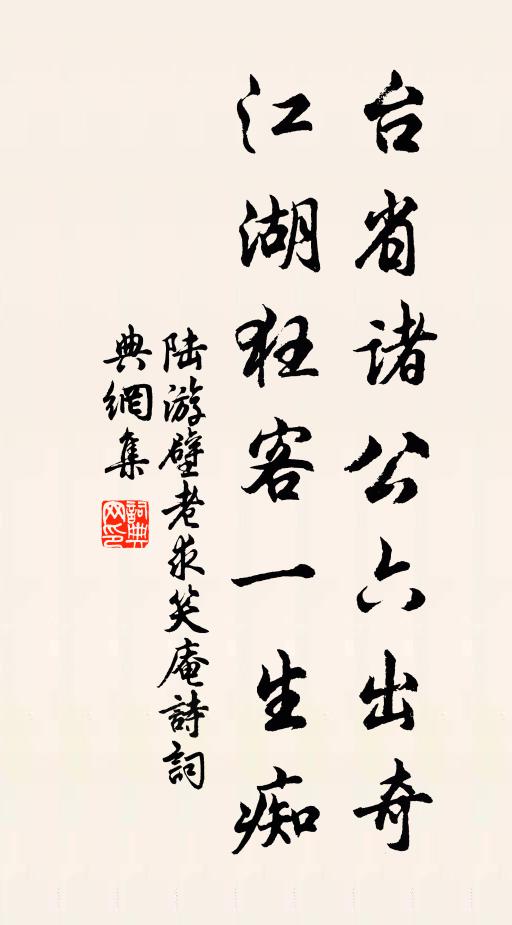 台省诸公六出奇
江湖狂客一生痴
陆游壁老求笑庵詩詞
典網集
詞典网印